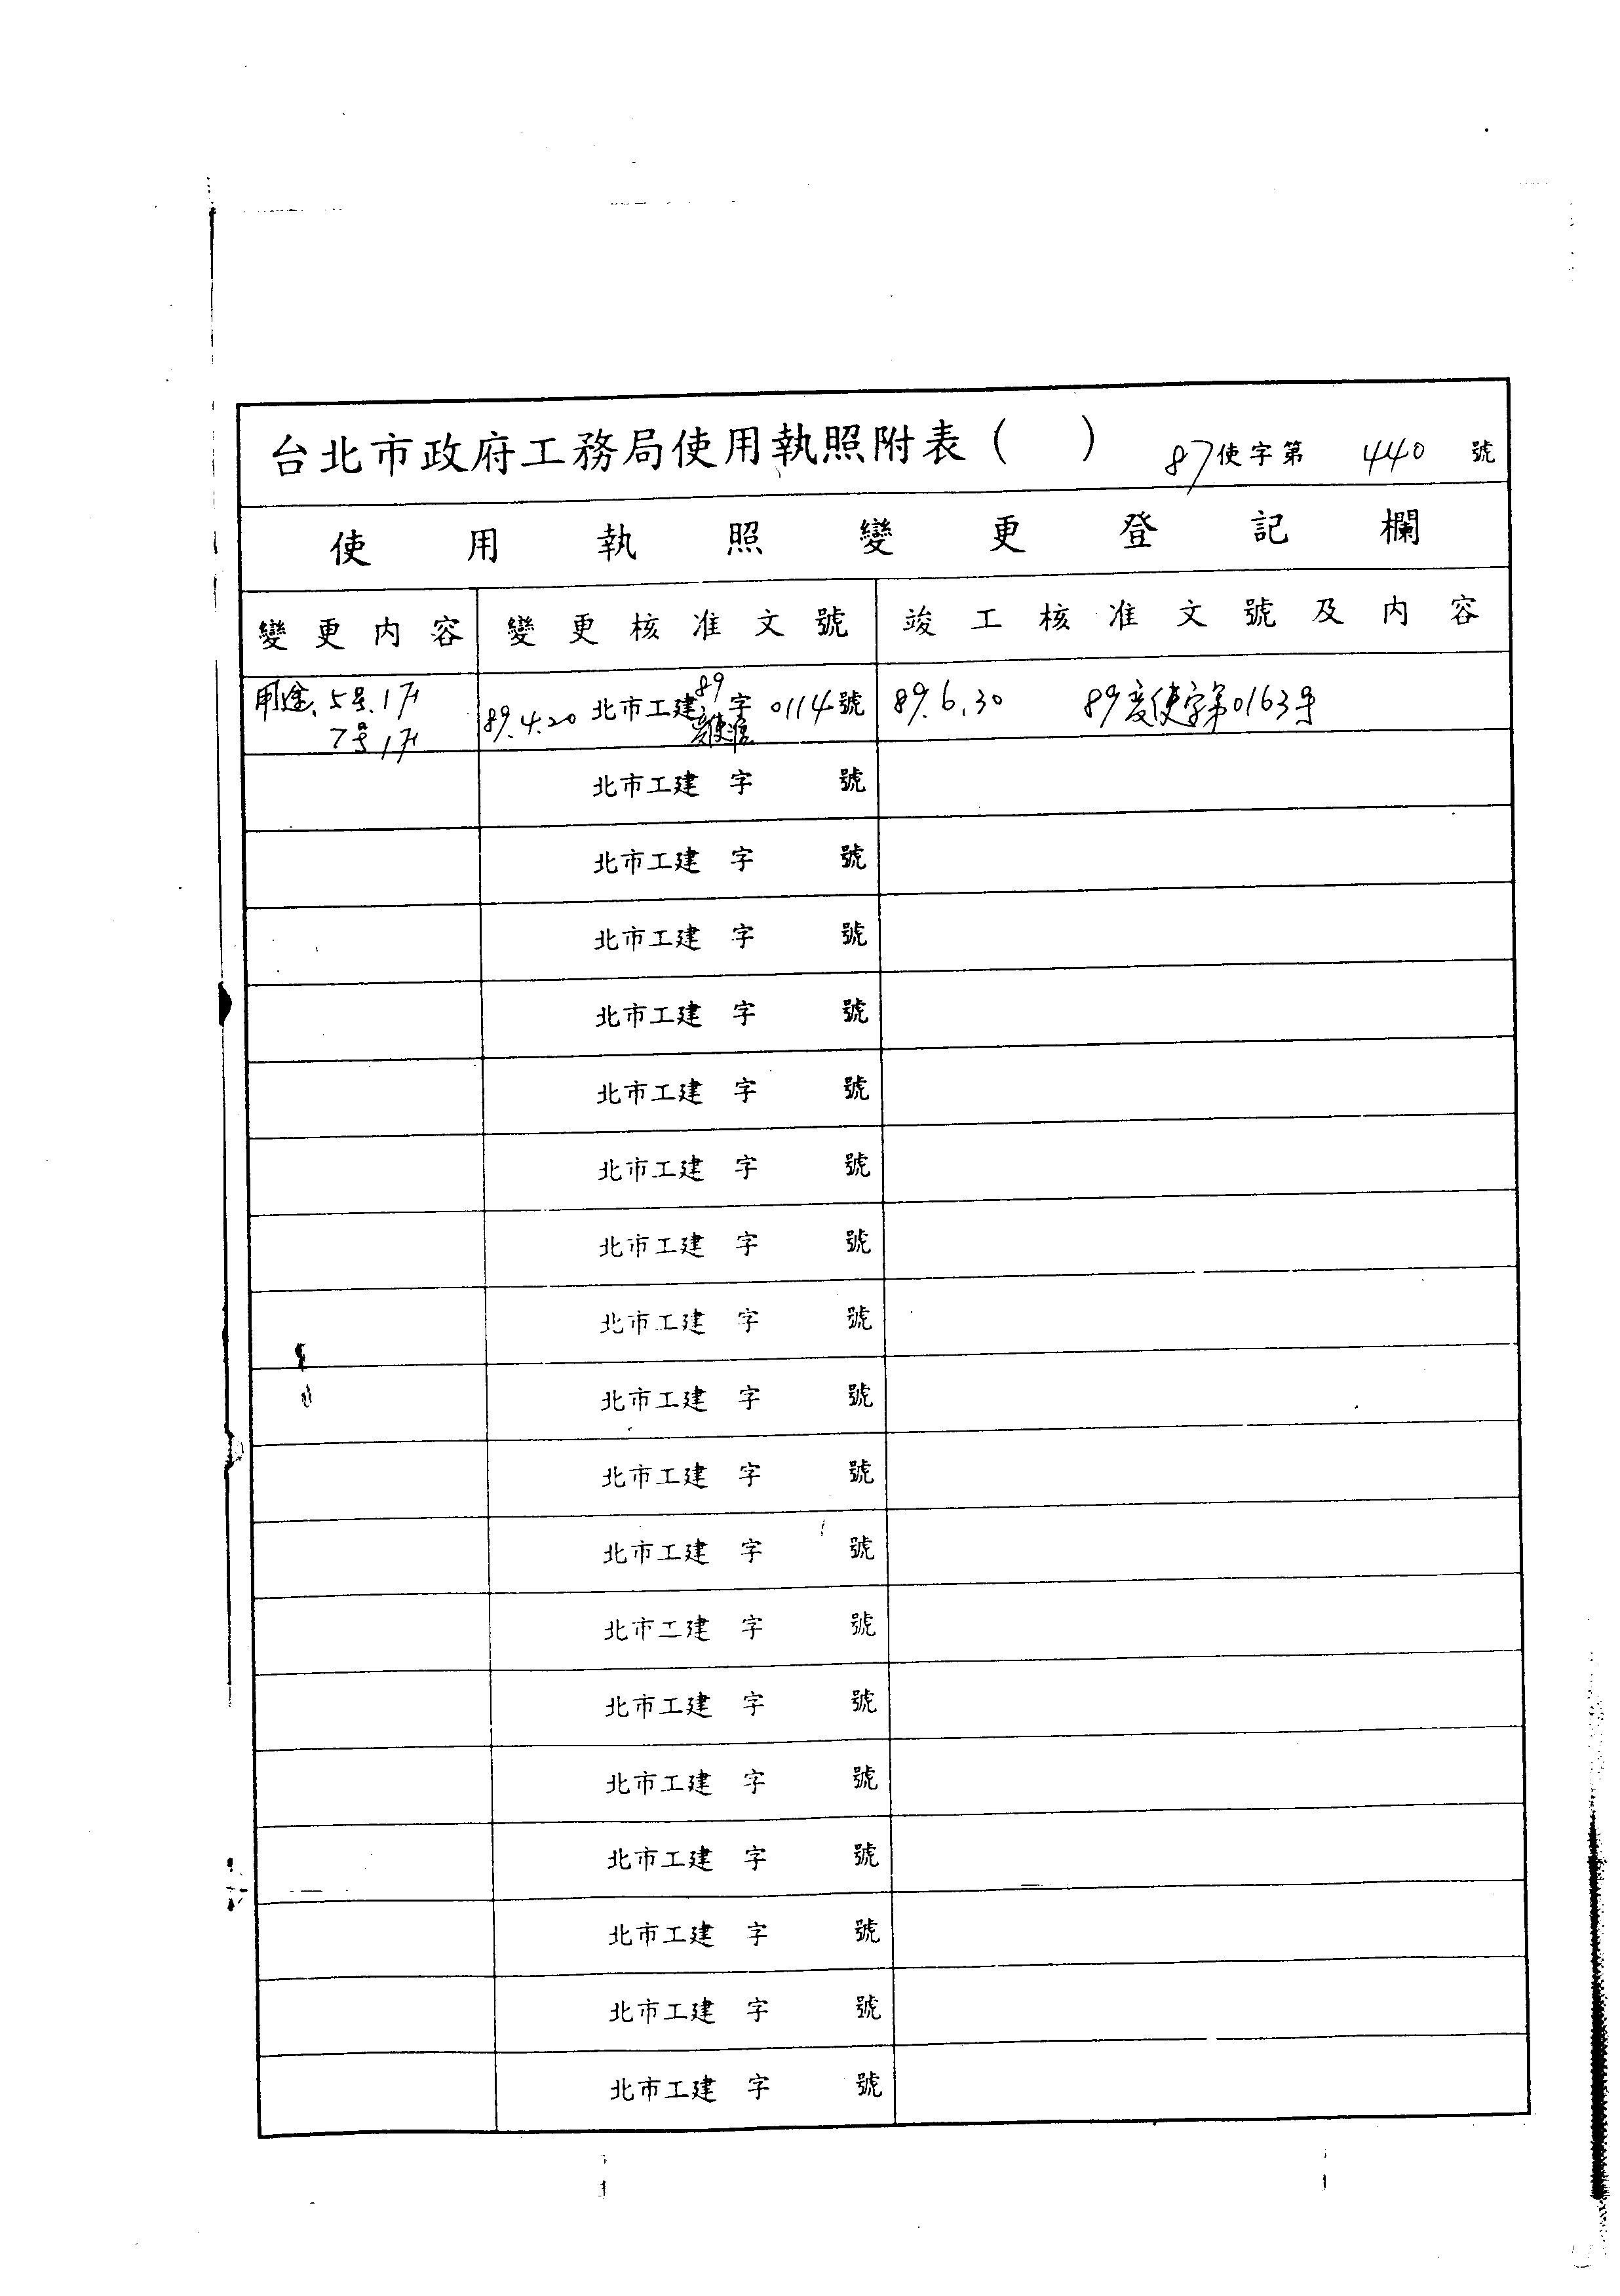 台北市政府工務局使用執照附表（　） 87使字第 440 號
使用執照變更登記欄
變更內容 變更核准文號 竣工核准文號及內容
用途、5号、1F 89.4.20 北市工建 89 變使准 字 0114 號 89.6.30 89變使字第0163号
7号、1F
北市工建 字 號
北市工建 字 號
北市工建 字 號
北市工建 字 號
北市工建 字 號
北市工建 字 號
北市工建 字 號
北市工建 字 號
北市工建 字 號
北市工建 字 號
北市工建 字 號
北市工建 字 號
北市工建 字 號
北市工建 字 號
北市工建 字 號
北市工建 字 號
北市工建 字 號
北市工建 字 號